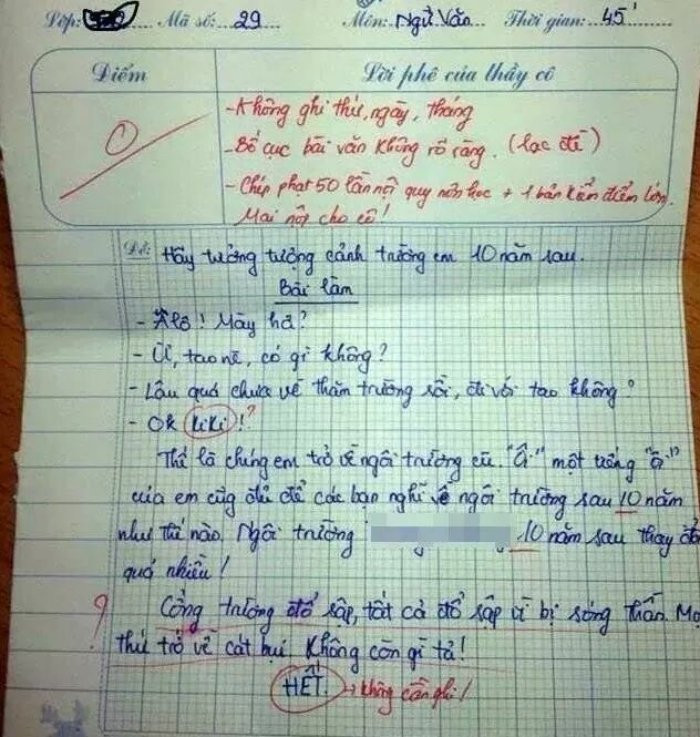 Lớp: Mã số: 29 Môn: Ngữ Văn Thời gian: 45'
Điểm Lời phê của thầy cô
0
- Không ghi thứ, ngày, tháng
- Bố cục bài văn không rõ ràng. (lạc đề)
- Chép phạt 50 lần nội quy môn học + 1 bản kiểm điểm lớn.
Mai nộp cho cô!
Đề: Hãy tưởng tượng cảnh trường em 10 năm sau.
Bài làm
- Alô! Mày hả?
- Ừ, tao nè, có gì không?
- Lâu quá chưa về thăm trường rồi, đi với tao không?
- Ok kiki!?
Thế là chúng em trở về ngôi trường cũ. "Ồ" một tiếng "ồ"
của em cũg đủ để các bạn nghĩ về ngôi trường sau 10 năm
như thế nào. Ngôi trường 10 năm sau thay đổ
quá nhiều!
? Cổng trường đổ sập, tất cả đổ sập vì bị sóng thần. Mọ
thứ trở về cát bụi. Không còn gì tả!
HẾT. → không cần ghi!